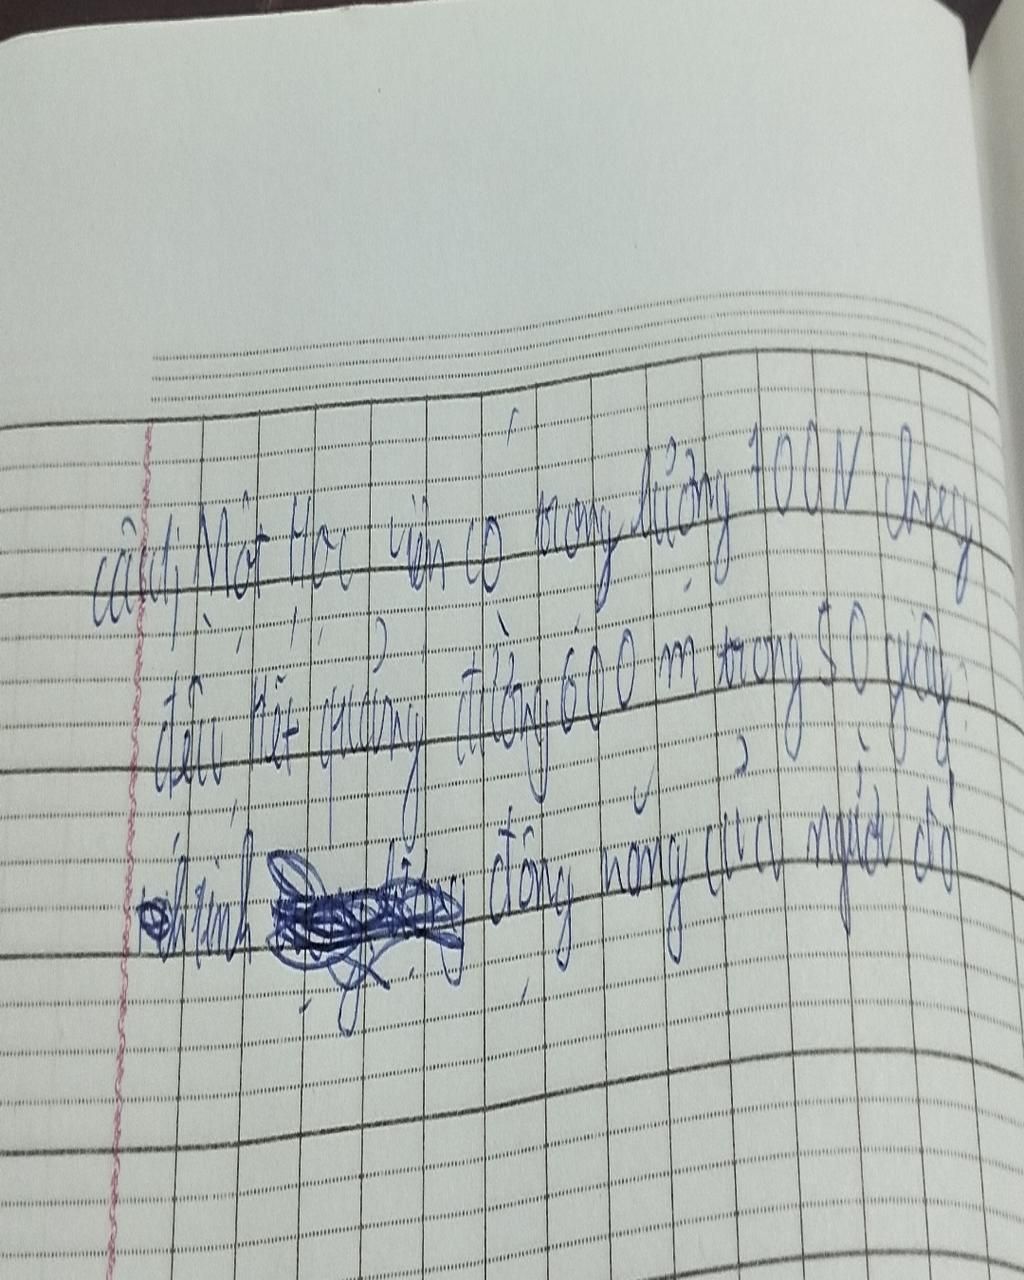 câu 1; Một Học viên có trọng lượng 700N chạy
đều hết quảng đường 600 m trong 50 giây
tính động năng của người đó